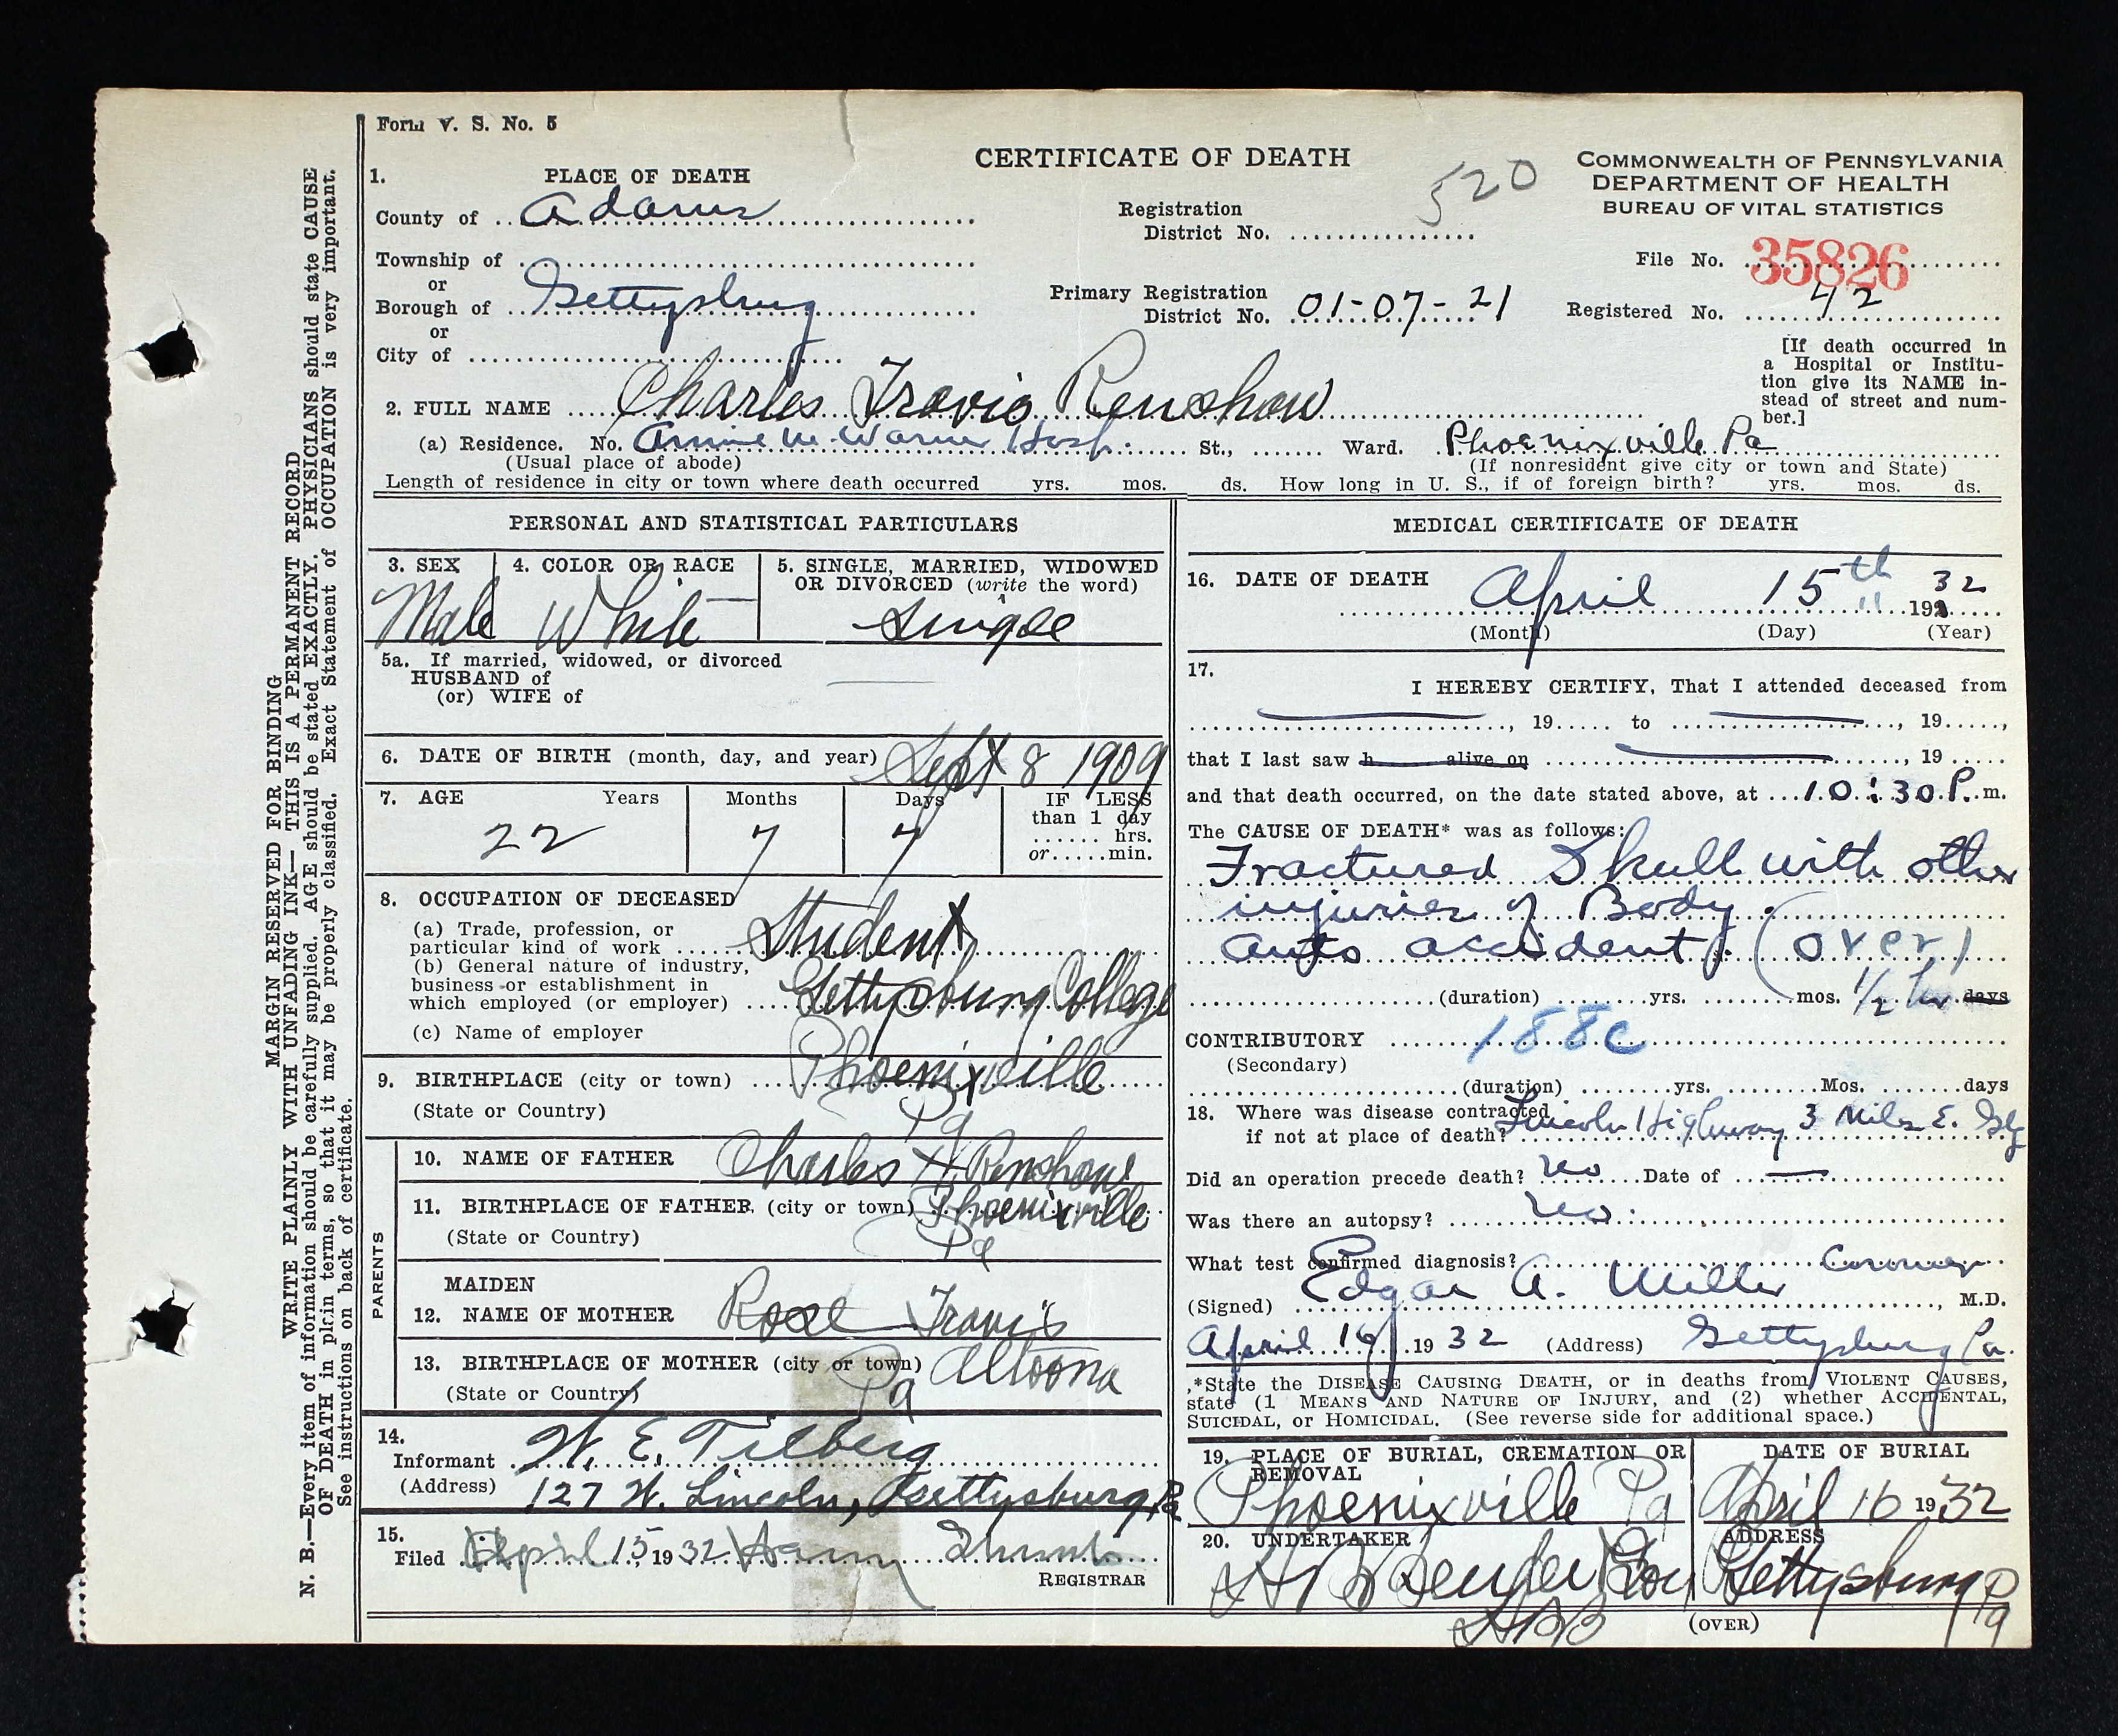 Form V. S. No. 5
CERTIFICATE OF DEATH
COMMONWEALTH OF PENNSYLVANIA
DEPARTMENT OF HEALTH
BUREAU OF VITAL STATISTICS
520
1. PLACE OF DEATH
County of Adams
Township of
or
Borough of Gettysburg
or
City of
Registration
District No.
Primary Registration
District No. 01-07-21
File No. 35826
Registered No. 42
[If death occurred in
a Hospital or Institu-
tion give its NAME in-
stead of street and num-
ber.]
2. FULL NAME Charles Travis Renshaw
(a) Residence. No. Annie M. Warner Hosp. St., Ward. Phoenixville Pa
(Usual place of abode) (If nonresident give city or town and State)
Length of residence in city or town where death occurred yrs. mos. ds. How long in U. S., if of foreign birth? yrs. mos. ds.
PERSONAL AND STATISTICAL PARTICULARS
3. SEX 4. COLOR OR RACE 5. SINGLE, MARRIED, WIDOWED
OR DIVORCED (write the word)
Male White Single
5a. If married, widowed, or divorced
HUSBAND of
(or) WIFE of
6. DATE OF BIRTH (month, day, and year) Sept 8 1909
7. AGE Years Months Days IF LESS
than 1 day
hrs.
or min.
22 7 7
8. OCCUPATION OF DECEASED
(a) Trade, profession, or
particular kind of work Student
(b) General nature of industry,
business or establishment in
which employed (or employer) Gettysburg College
(c) Name of employer
9. BIRTHPLACE (city or town) Phoenixville
(State or Country) Pa
PARENTS
10. NAME OF FATHER Charles H Renshaw
11. BIRTHPLACE OF FATHER (city or town) Phoenixville
(State or Country) Pa
MAIDEN
12. NAME OF MOTHER Rose Travis
13. BIRTHPLACE OF MOTHER (city or town) Altoona
(State or Country) Pa
14.
Informant W. E. Tilberg
(Address) 127 W. Lincoln, Gettysburg, Pa
15.
Filed April 15, 1932
REGISTRAR
MEDICAL CERTIFICATE OF DEATH
16. DATE OF DEATH April 15th 1932
(Month) (Day) (Year)
17.
I HEREBY CERTIFY, That I attended deceased from
, 19 to , 19 ,
that I last saw h alive on , 19
and that death occurred, on the date stated above, at 10:30 P. m.
The CAUSE OF DEATH* was as follows:
Fractured Skull with other
injuries of Body.
auto accident. (over)
(duration) yrs. mos. 1/2 hr days
CONTRIBUTORY 188c
(Secondary)
(duration) yrs. Mos. days
18. Where was disease contracted
if not at place of death? Lincoln Highway 3 Miles E. Gbg
Did an operation precede death? no Date of —
Was there an autopsy? no.
What test confirmed diagnosis?
(Signed) Edgar A. Miller Coroner, M.D.
April 16, 1932 (Address) Gettysburg Pa.
*State the DISEASE CAUSING DEATH, or in deaths from VIOLENT CAUSES,
state (1 MEANS AND NATURE OF INJURY, and (2) whether ACCIDENTAL,
SUICIDAL, or HOMICIDAL. (See reverse side for additional space.)
19. PLACE OF BURIAL, CREMATION OR
REMOVAL
Phoenixville Pa
DATE OF BURIAL
April 16 1932
20. UNDERTAKER
H B Bender & Son
ADDRESS
Gettysburg Pa
HBB
(OVER)
MARGIN RESERVED FOR BINDING
WRITE PLAINLY WITH UNFADING INK—THIS IS A PERMANENT RECORD
N. B.—Every item of information should be carefully supplied. AGE should be stated EXACTLY. PHYSICIANS should state CAUSE
OF DEATH in plain terms, so that it may be properly classified. Exact Statement of OCCUPATION is very important.
See instructions on back of certificate.